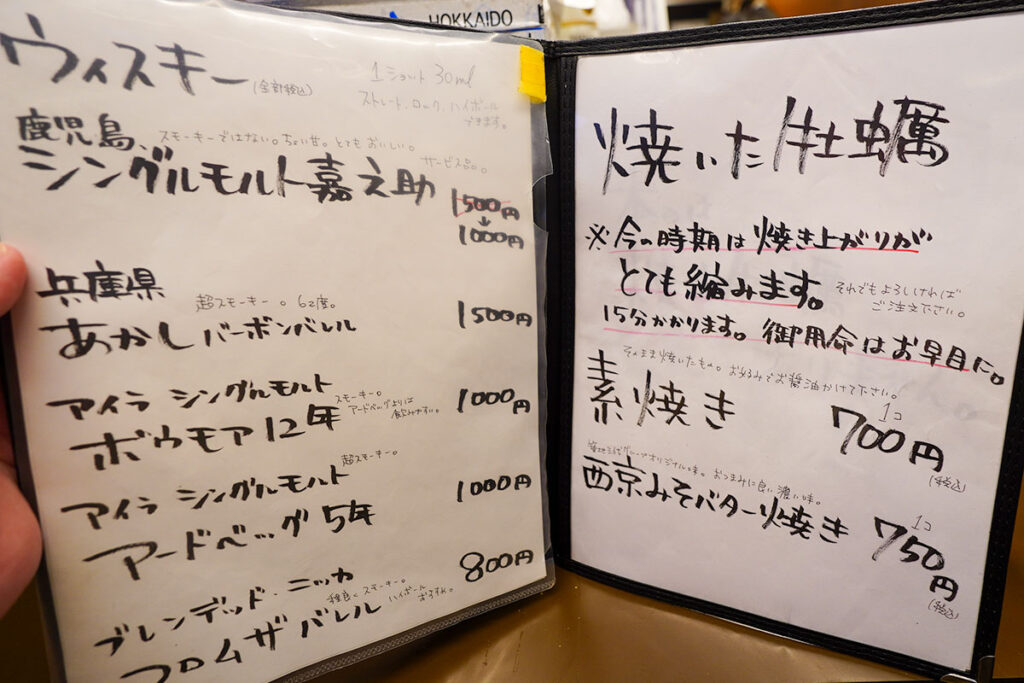 HOKKAIDO
ウィスキー (全部税込)
1ショット 30ml
ストレート、ロック、ハイボール
できます。
鹿児島、スモーキーではない。ちょい甘。とてもおいしい。
シングルモルト嘉之助 サービス品。
1500円
↓
1000円
兵庫県
超スモーキー。62度。
あかしバーボンバレル 1500円
アイラ シングルモルト
スモーキー。
アードベッグよりは
飲みやすい。
ボウモア12年 1000円
アイラ シングルモルト 超スモーキー。
アードベッグ5年 1000円
ブレンデッド・ニッカ
程良くスモーキー。
ハイボール
おすすめ。
フロムザバレル 800円
焼いた牡蠣
※今の時期は焼き上がりが
とても縮みます。
それでもよろしければ
ご注文下さい。
15分かかります。御用命はお早目に。
そのまま焼いたもの。お好みでお醤油かけて下さい。
素焼き 1コ 700円 (税込)
グループオリジナル味。おつまみに良い濃い味。
西京みそバター焼き 1コ 750円 (税込)